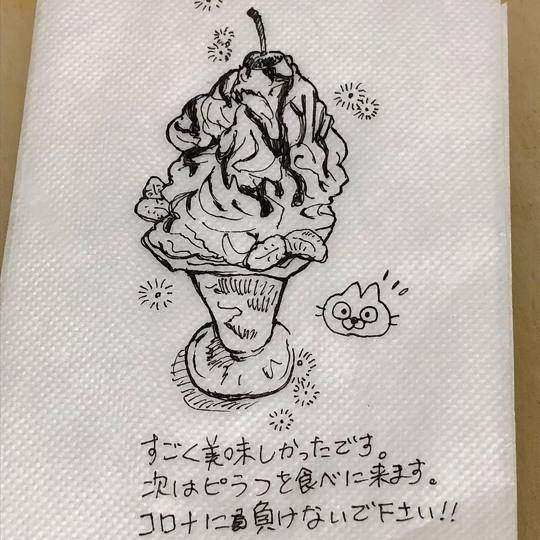 すごく美味しかったです。
次はピラフを食べに来ます。
コロナに負けないで下さい!!